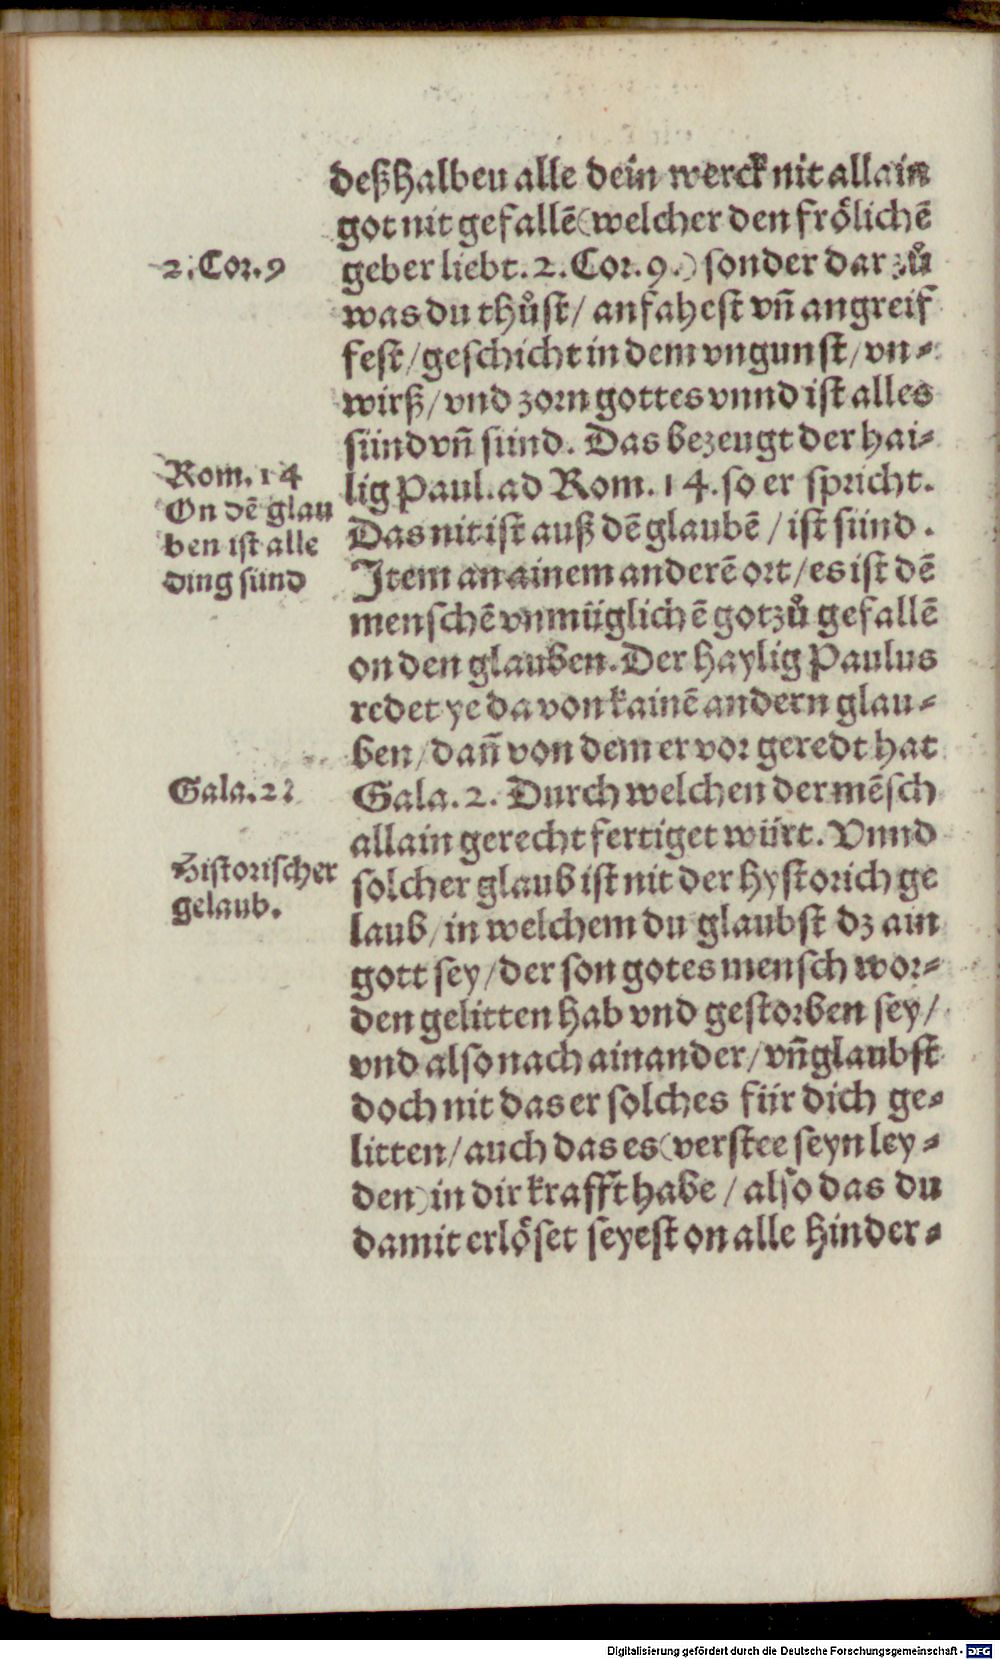 deßhalben alle dein werck nit allain
got nit gefallē (welcher den frölichē
2. Cor. 9
geber liebt. 2. Cor. 9.) sonder dar zů
was du thůst / anfahest vn̄ angreif
fest / geschicht in dem vngunst / vn⸗
wirß / vnd zorn gottes vnnd ist alles
sünd vn̄ sünd. Das bezeugt der hai⸗
Rom. 14
On dē glau
ben ist alle
ding sünd
lig Paul. ad Rom. 14. so er spricht.
Das nit ist auß dē glaubē / ist sünd.
Item an ainem anderē ort / es ist dē
menschē vnmüglichē got zů gefallē
on den glauben. Der haylig Paulus
redet ye da von kainē andern glau⸗
ben / dan̄ von dem er vor geredt hat
Gala. 2.
Gala. 2. Durch welchen der mēsch
allain gerechtfertiget würt. Vnnd
Historischer
gelaub.
solcher glaub ist nit der hystorich ge
laub / in welchem du glaubst dz ain
gott sey / der son gotes mensch wor⸗
den gelitten hab vnd gestorben sey /
vnd also nach ainander / vn̄ glaubst
doch nit das er solches für dich ge⸗
litten / auch das es (verstee seyn ley⸗
den) in dir krafft habe / also das du
damit erlöset seyest on alle hinder⸗
Digitalisierung gefördert durch die Deutsche Forschungsgemeinschaft - DFG